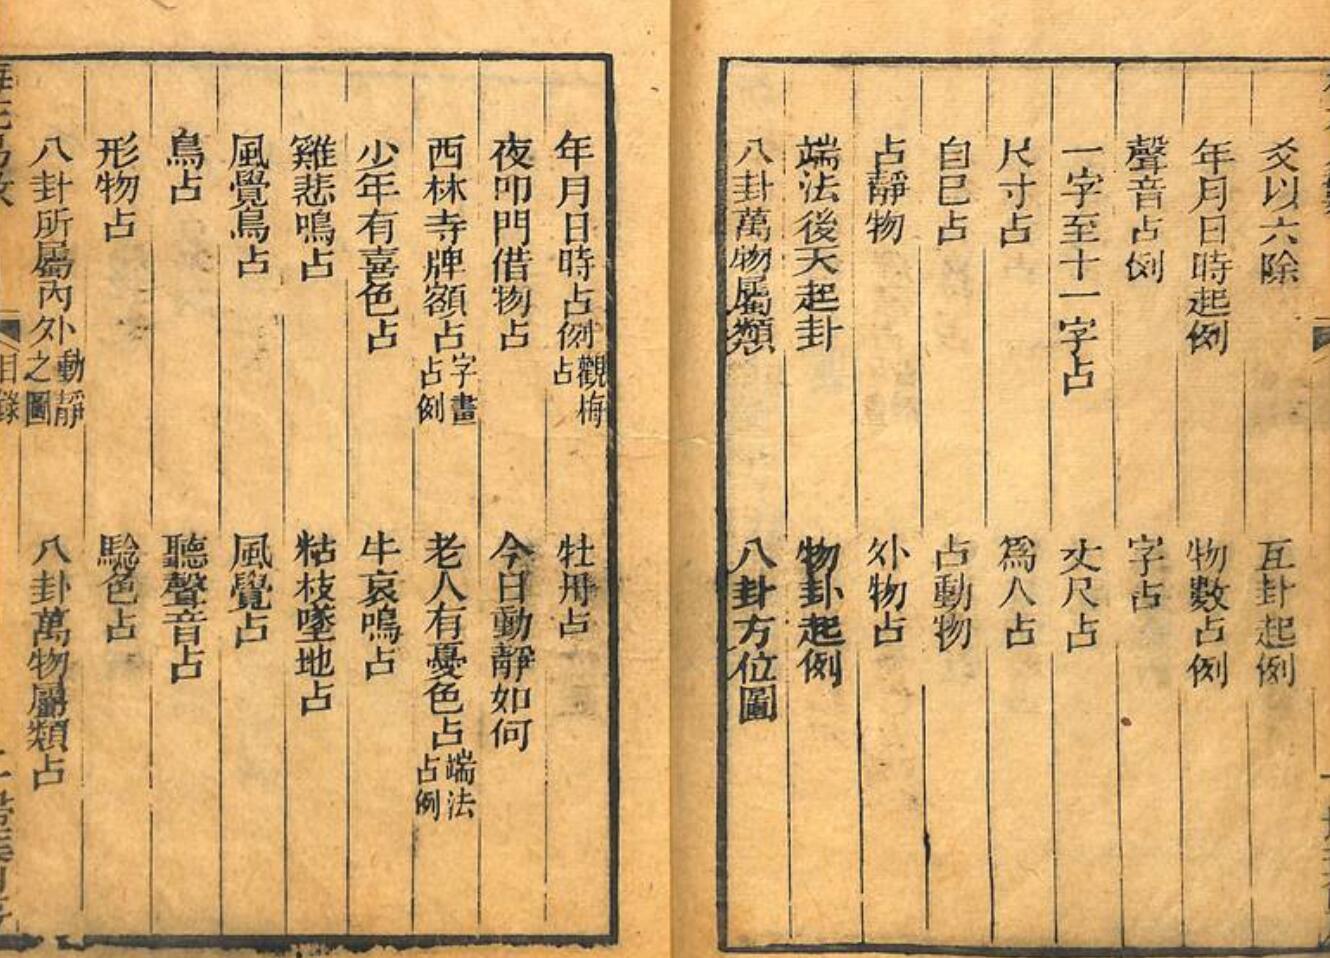 爻以六除　互卦起例
年月日時起例　物數占例
聲音占例　字占
一字至十一字占　丈尺占
尺寸占　爲人占
自己占　占動物
占靜物　外物占
端法後天起卦　物卦起例
八卦萬物屬類　八卦方位圖
年月日時占例觀梅占　牡丹占
夜叩門借物占　今日動靜如何
西林寺牌額占字畫占例　老人有憂色占端法占例
少年有喜色占　牛哀鳴占
雞悲鳴占　枯枝墜地占
風覺鳥占　風覺占
鳥占　聽聲音占
形物占　驗色占
八卦所屬內外動靜之圖　八卦萬物屬類占
目錄